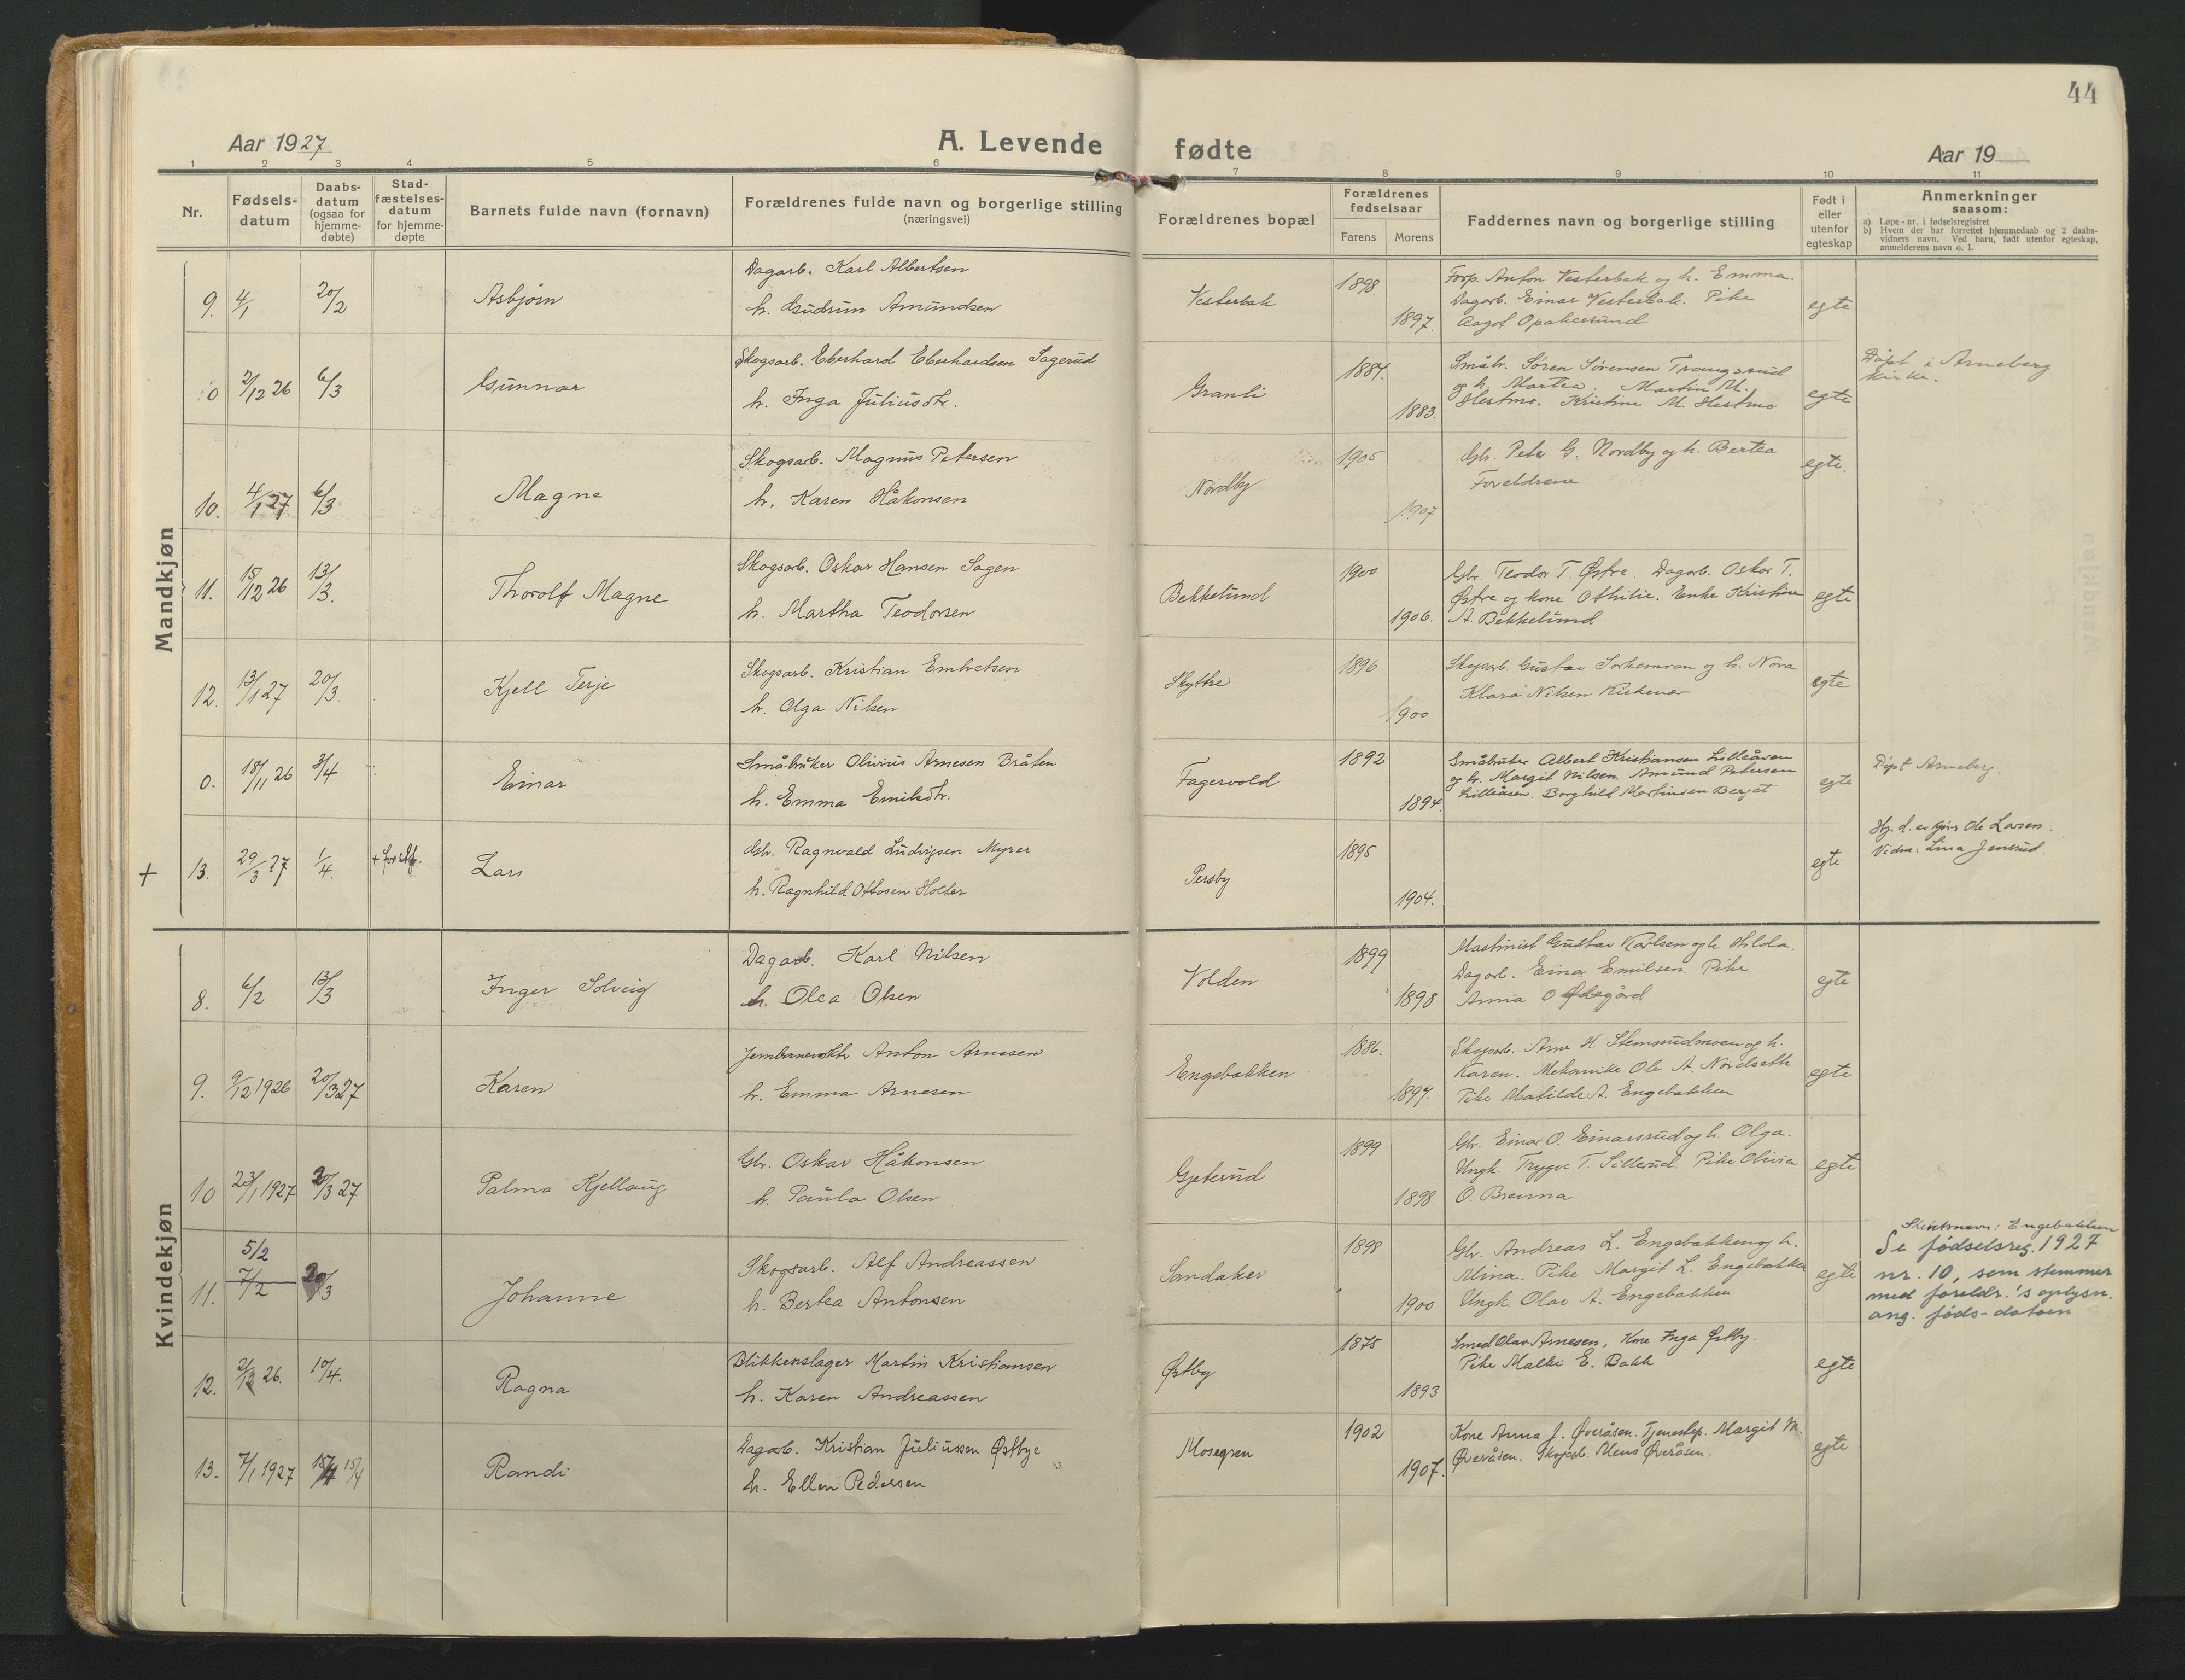 44
Aar 1927
A. Levende fødte
Aar 19
1 2 3 4 5 6 7 8 9 10 11
Nr.
Fødsels-
datum
Daabs-
datum
(ogsaa for
hjemme-
døbte)
Stad-
fæstelses-
datum
for hjemme-
døpte
Barnets fulde navn (fornavn)
Forældrenes fulde navn og borgerlige stilling
(næringsvei)
Forældrenes bopæl
Forældrenes
fødselsaar
Farens Morens
Faddernes navn og borgerlige stilling
Født i
eller
utenfor
egteskap
Anmerkninger
saasom:
a) Løpe-nr. i fødselsregistret
b) Hvem der har forrettet hjemmedaab og 2 daabs-
vidners navn. Ved barn, født utenfor egteskap,
anmelderens navn o. l.
Mandkjøn
9. 4/1 20/2 Asbjørn
Dagarb. Karl Albertsen
h. Gudrun Amundsen
Vesterbak 1898 1897.
Forp. Anton Vesterbak og h. Emma.
Dagarb. Einar Vesterbak. Pike
Aagot
egte
0 2/12 26 6/3 Gunnar
Skogsarb. Eberhard Eberhardsen Sagerud
h. Inga Juliusdtr.
Granli 1884. 1883.
Småbr. Søren Sørensen Trangsrud
og h. Martea. Martin M.
Hestmo. Kristine M. Hestmo
egte
Døpt i Arneberg
kirke.
10. 4/1 27 6/3 Magne
Skogsarb. Magnus Petersen
h. Karen Håkonsen
Nordby 1905 1907
Gbr. Peter G. Nordby og h. Bertea
Foreldrene
egte.
11. 15/12 26 13/3. Thorolf Magne
Skogsarb. Oskar Hansen Sagen
h. Martha Teodorsen
Bekkelund 1900 1906.
Gbr. Teodor T. Østre. Dagarb. Oskar T.
Østre og kone Othilie. Enke Kristine
A. Bekkelund
egte
12. 13/1 27 20/3. Kjell Terje
Skogsarb. Kristian Embretsen
h. Olga Nilsen
Skyttre 1896 1900
Skogsarb. Gustav og h. Nora
Klara Nilsen
egte
0. 18/11 26 3/4 Einar
Småbruker Olivius Arnesen Bråten
h. Emma Emilsdtr.
Fagervold 1892 1894.
Småbruker Albert Kristiansen Lilleåsen
og h. Margit Nilsen. Amund Petersen
Lilleåsen. Borghild Martinsen Berget
egte
Døpt Arneberg.
+ 13. 29/3 27 1/4. + før Lars
Gbr. Ragnvald Ludvigsen Myrer
h. Ragnhild Ottosen Holter
Persby 1895 1904.
egte
Hj. d. av Ole Larsen.
Vidne: Lina Jensrud.
Kvindekjøn
8. 6/2 13/3 Inger Solveig
Dagarb. Karl Nilsen
h. Olea Olsen
Volden 1899 1898
Maskinist Gustav Karlsen og h. Hilda.
Dagarb. Einar Emilsen. Pike
Anna O Ødegård
egte
9. 9/12 1926 20/3 27 Karen
Jernbanevokter Anton Arnesen
h. Emma Arnesen
Engebakken 1886. 1897.
Skogsarb. Arne H. Stemsrudmoen og h.
Karen. Mekanike Ole A. Nordseth
Pike Matilde A. Engebakken
egte
10 23/1 1927 20/3 27 Palma Kjellaug
Gbr. Oskar Håkonsen
h. Paula Olsen
Gjeterud 1899 1898
Gbr. Einar O. Einarsrud og h. Olga.
Ungk. Trygve T. Sillerud. Pike Olivia
O. Brenna
egte
11. 5/2 7/2 20/3 Johanne
Skogsarb. Alf Andreassen
h. Bertea Antonsen
Sandaker 1898 1900
Gbr. Andreas L. Engebakken og h.
Mina. Pike Margit L. Engebakken
Ungk. Olav A. Engebakken
egte
Slektsnavn: Engebakken
Se fødselsreg. 1927
nr. 10, som stemmer
med foreldr.'s oplysn.
ang. føds-datoen
12. 2/12 26. 10/4. Ragna
Blikkenslager Martin Kristiansen
h. Karen Andreassen
Østby 1875 1893
Smed Olav Arnesen, Kone Inga Østby.
Pike Malli E. Bakk
egte
13. 7/1 1927 15/4 15/4 Randi
Dagarb. Kristian Juliussen Østbye
h. Ellen Pedersen
Mosegren 1902 1907.
Kone Anna J. Øveråsen. Tjenestep. Margit M.
Øveråsen. Skogsarb. Mens Øveråsen.
egte